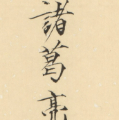 諸葛亮